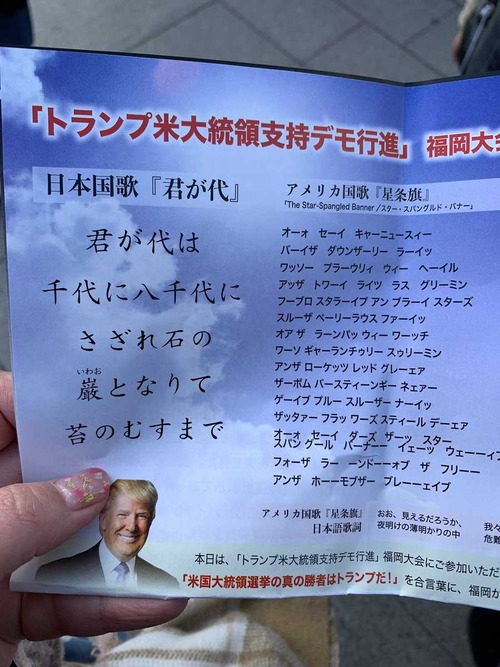 「トランプ米大統領支持デモ行進」 福岡大会
日本国歌『君が代』
君が代は
千代に八千代に
さざれ石の
いわお
巌となりて
苔のむすまで
アメリカ国歌『星条旗』
「The Star-Spangled Banner /スター・スパングルド・バナー」
オーォ セーイ キャーニュースィー
バーイザ ダウンザーリー ラーイッ
ワッソー プラーウリィ ウィー ヘーイル
アッザ トワーイ ライツ ラス グリーミン
フーブロ スタラーイプ アン ブラーイ スターズ
スルーザ ペーリーラウス ファーイッ
オア ザ ラーンパッ ウィー ワーッチ
ワーソ ギャーランチゥリー スゥリーミン
アンザ ローケッツ レッド グレーェア
ザーボム バースティーンギー ネェアー
ゲーイブ プルー スルーザー ナーイッ
ザッタァー フラッ ワーズ スティール デーェア
オーォ セーイ ダーズ ザーッ スター
スパン グール バーナー イェーッ ウェーーイブ
フォーザ ラー ーンドーーオブ ザ フリーー
アンザ ホーーモブザー ブレーーェイブ
アメリカ国歌『星条旗』
日本語歌詞
おお、見えるだろうか、
夜明けの薄明かりの中
我々
危難
本日は、「トランプ米大統領支持デモ行進」福岡大会にご参加いただ
「米国大統領選挙の真の勝者はトランプだ!」を合言葉に、福岡か